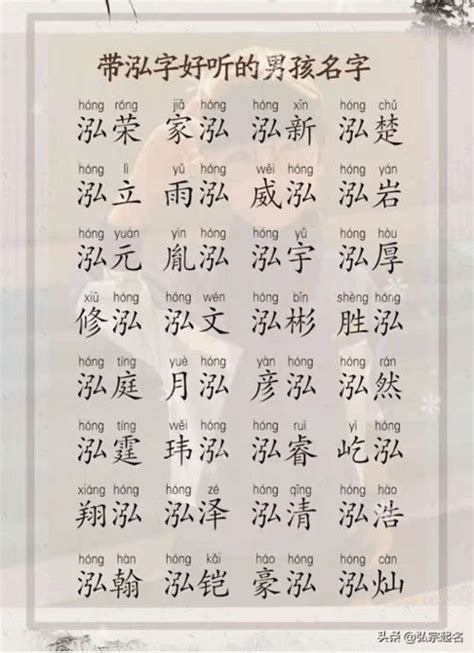 带泓字好听的男孩名字
hóng róng jiā hóng hóng xīn hóng chǔ
泓荣 家泓 泓新 泓楚
hóng lì yǔ hóng wēi hóng hóng yán
泓立 雨泓 威泓 泓岩
hóng yuán yìn hóng hóng yǔ hóng hòu
泓元 胤泓 泓宇 泓厚
xiū hóng hóng wén hóng bīn shèng hóng
修泓 泓文 泓彬 胜泓
hóng tíng yuè hóng yàn hóng hóng rán
泓庭 月泓 彦泓 泓然
hóng tíng wěi hóng hóng ruì yì hóng
泓霆 玮泓 泓睿 屹泓
xiáng hóng hóng zé hóng qīng hóng hóng
翔泓 泓泽 泓清 泓浩
hóng hàn hóng kǎi háo hóng hóng càn
泓翰 泓铠 豪泓 泓灿
头条 @弘宗起名